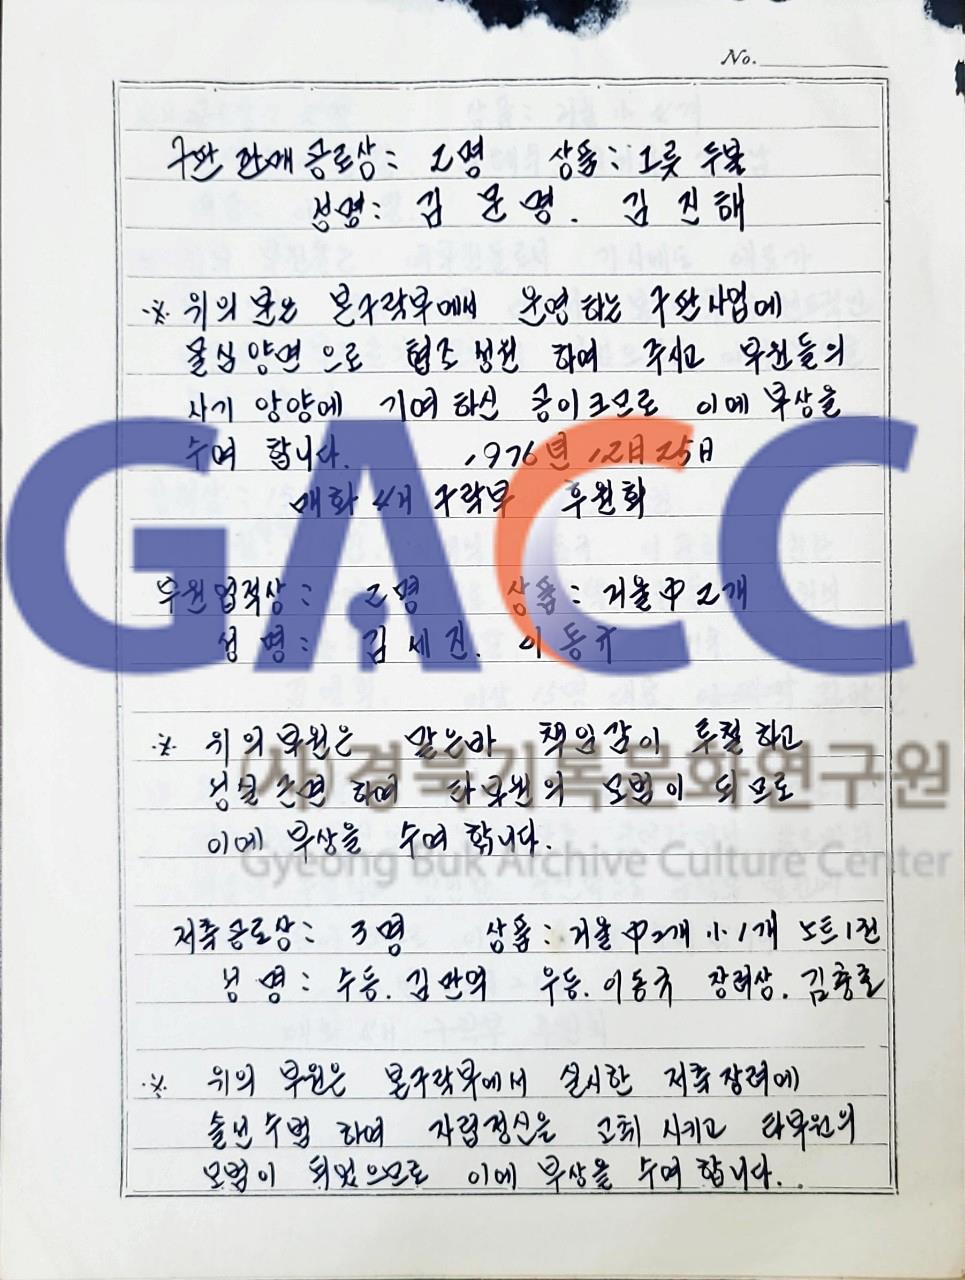 No.
구판판매공로상: 2명 상품: 그릇 두불
성명: 김문명. 김진해
※ 위의 분은 본구락부에서 운영하는 구판사업에
물심양면으로 협조 성원 하여 주시고 부원들의
사기 앙양에 기여하신 공이 크므로 이에 부상을
수여 합니다. 1976년 12月 25日
매화 4H 구락부 후원회
부원업적상: 2명 상품: 거울 中 2개
성명: 김세진. 이동규
※ 위의 부원은 맡은바 책임감이 투철하고
성실근면 하며 타부원의 모범이 되므로
이에 부상을 수여 합니다.
저축공로상: 3명 상품: 거울 中 2개 小 1개 노트 1권
성명: 수등. 김만억 우등. 이동규 장려상. 김충호
※ 위의 부원은 본구락부에서 실시한 저축장려에
솔선수범 하여 자립정신을 고취 시키고 타부원의
모범이 되었으므로 이에 부상을 수여 합니다.
GACC
(사)경북기록문화연구원
Gyeong Buk Archive Culture Center